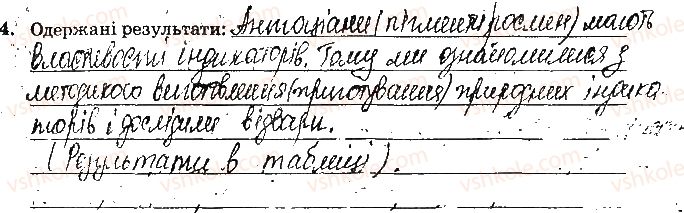 4. Одержані результати: Антоціани (пігменти рослин) мають
властивості індикаторів. Тому ми ознайомилися з
методикою виготовлення (приготування) природних індика-
торів і дослідили відвари.
(Результати в таблиці).